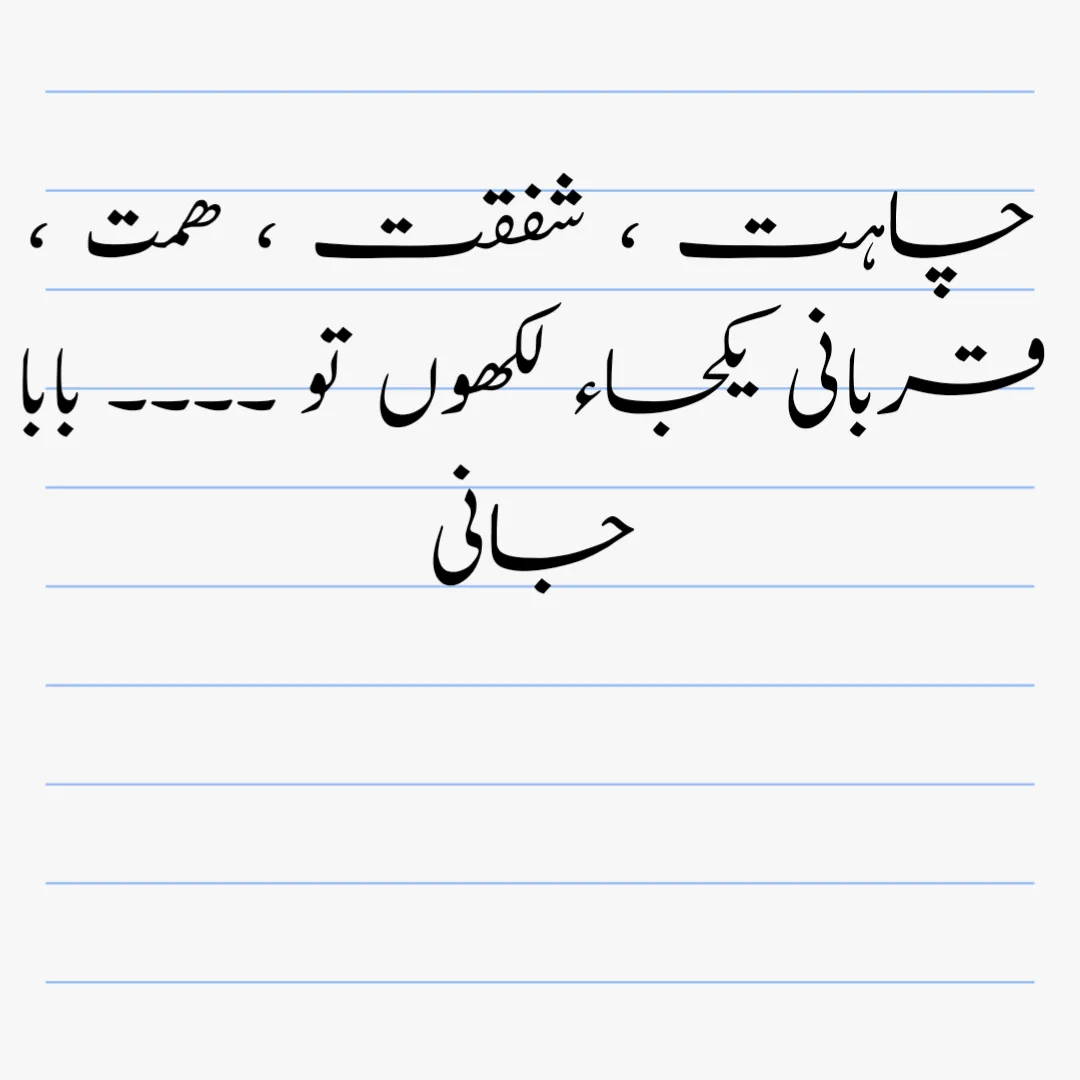 چاہت ، شفقت ، ھمت ،
قربانی یکجاء لکھوں تو ۔۔۔۔ بابا
جانی